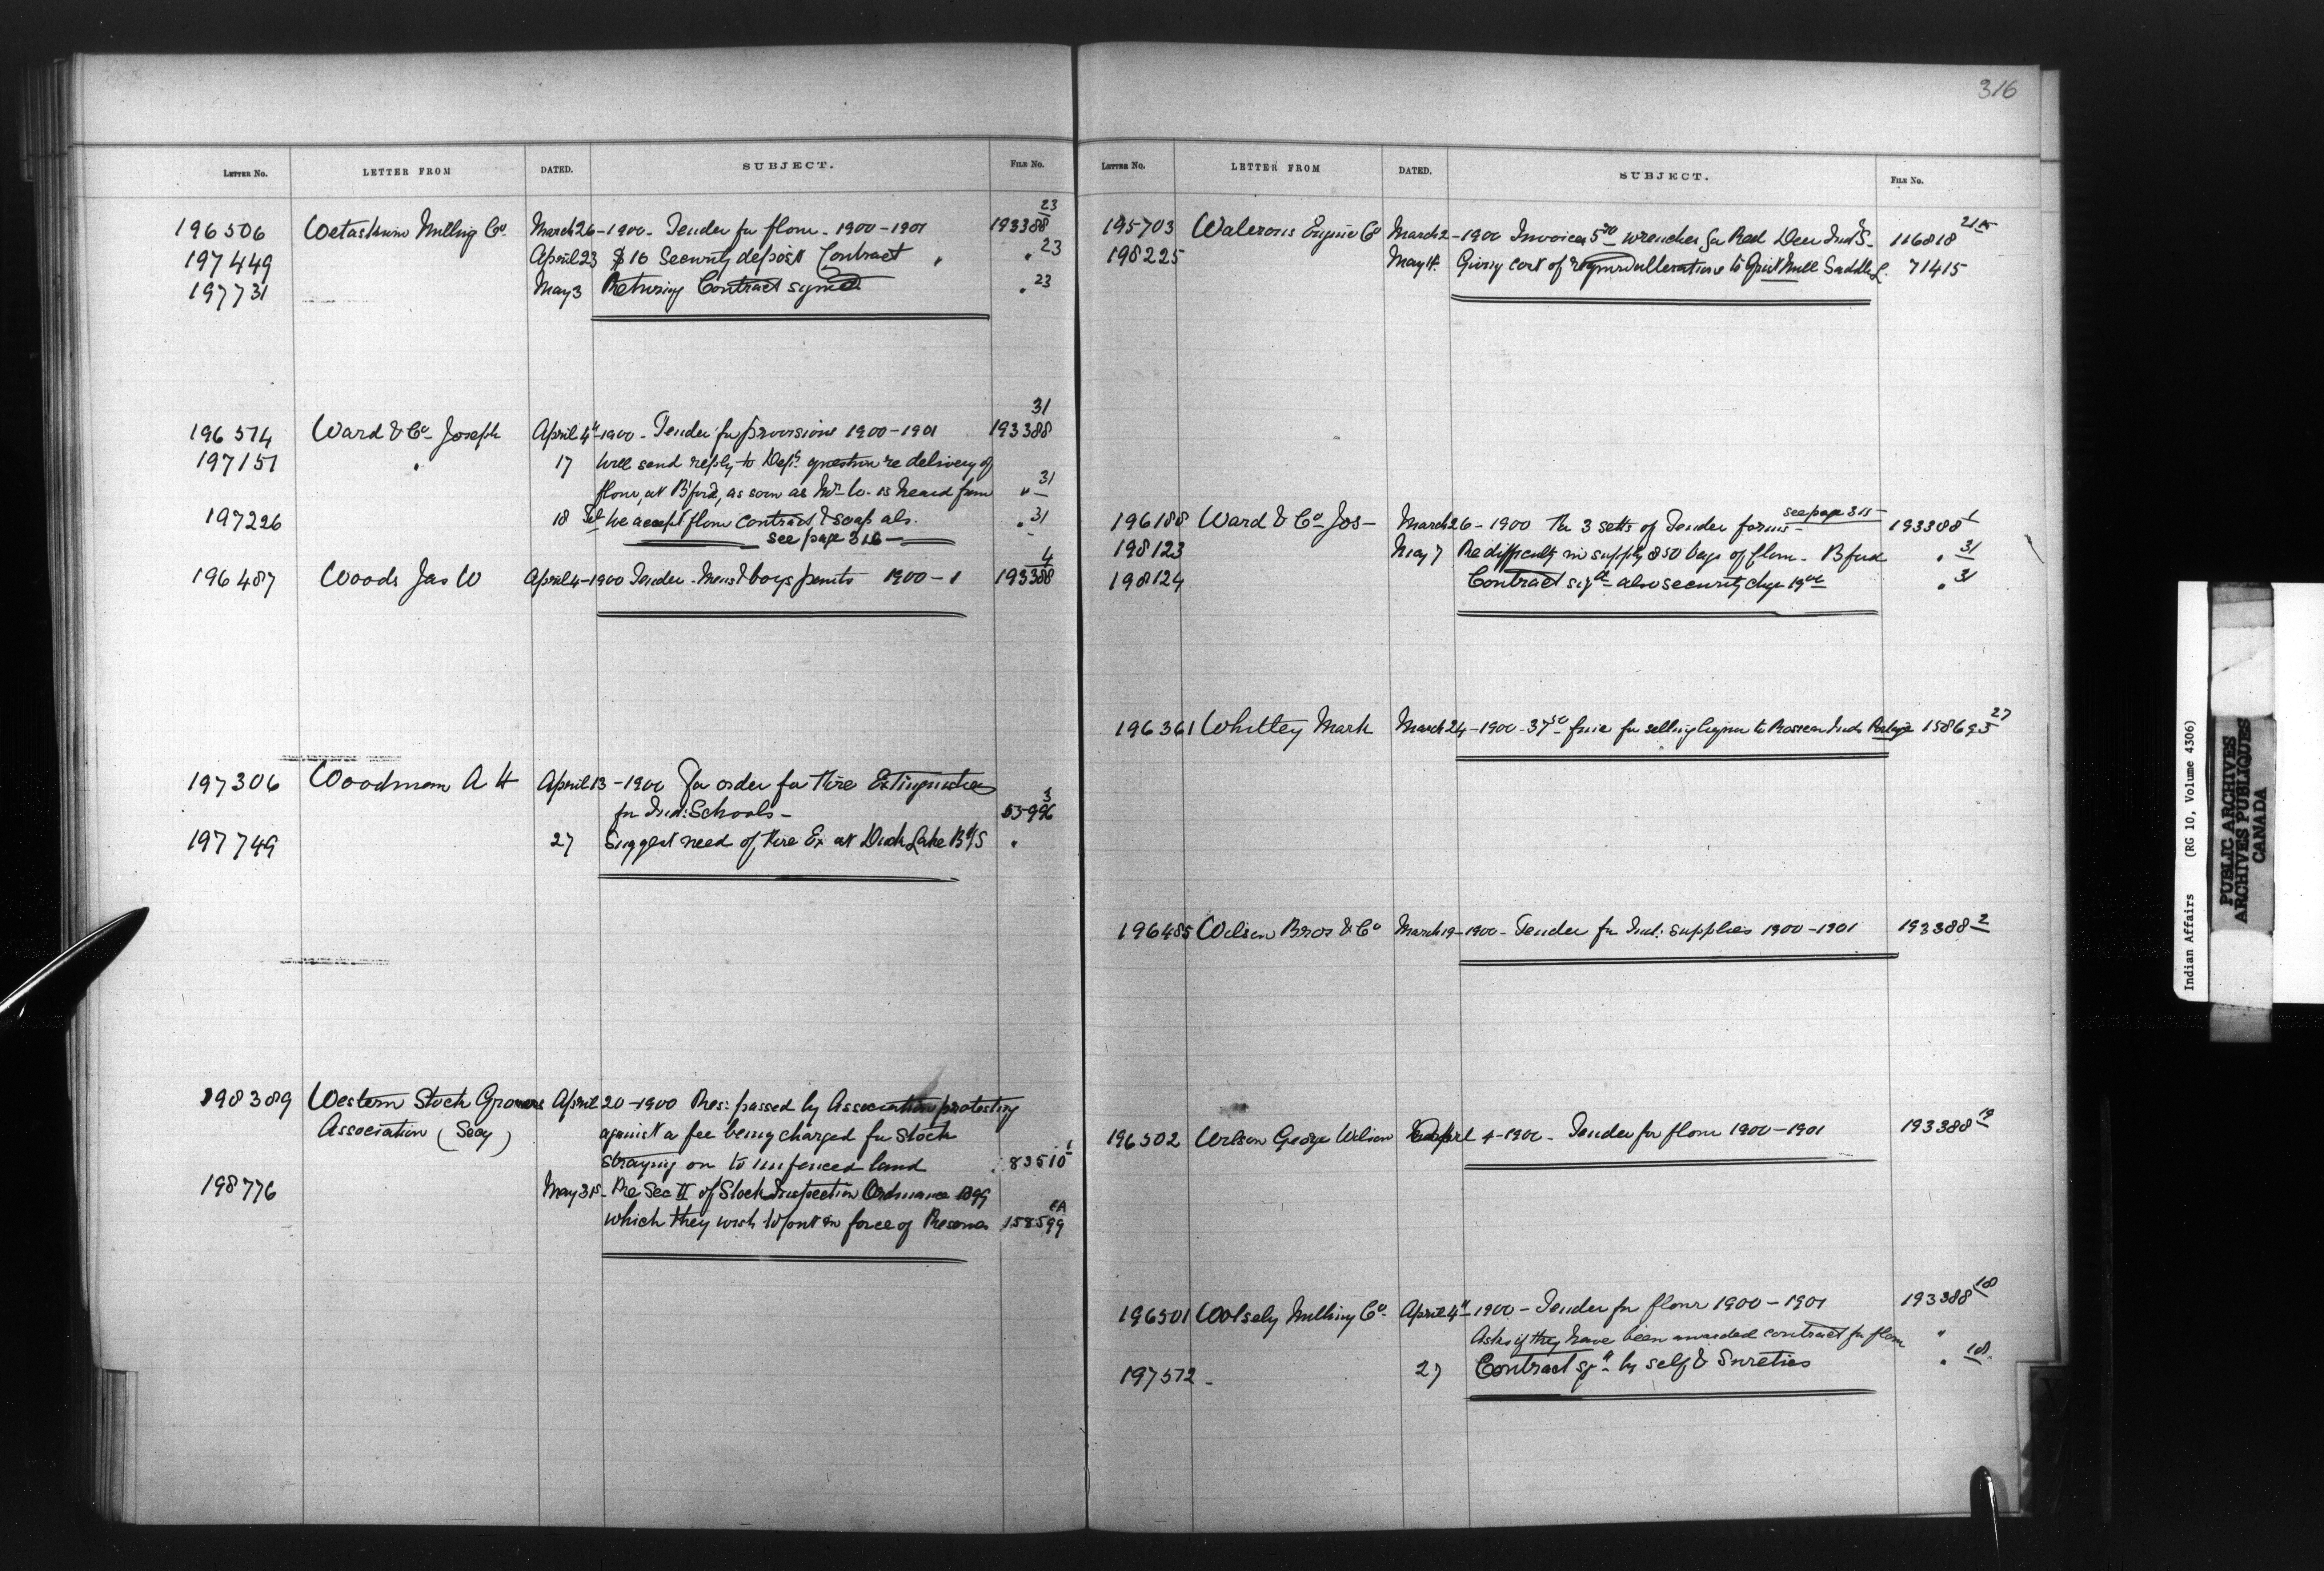 316
LETTER No. LETTER FROM DATED. SUBJECT. FILE No.
196506 Wetaskiwin Milling Co. March 26 - 1900 - Tender for flour - 1900-1901 193388 23
197449 April 23 $16 Security deposit Contract " " 23
197731 May 3 Returning Contract signed " 23
196574 Ward & Co Joseph April 4" - 1900 - Tender for provisions 1900-1901 193388 31
197151 " 17 Will send reply to Dept. question re delivery of
flour, at B'ford, as soon as Mr W. is heard from " 31
197226 18 we accept flour contract & soap als. " 31
see page 316
196487 Woods Jas W April 4 - 1900 Tender - Mens & boys pants 1900-1 193388 4
197306 Woodman A H April 13 - 1900 For order for Fire Extinguishers
for Ind: Schools - 55996 3
197749 27 Suggest need of Fire Ex at Duck Lake Bd/S "
198389 Western Stock Growers April 20 - 1900 Res: passed by Association protesting
Association (Secy) against a fee being charged for Stock
straying on to unfenced land 83510 1
198776 May 31st - Re Sec II of Stock Inspection Ordinance 1899
which they wish to put in force of Reserves 158599 CA
LETTER No. LETTER FROM DATED. SUBJECT. FILE No.
195703 Waterous Engine Co March 2 - 1900 Invoice 5 wrenches for Red Deer Ind S - 116818
198225 May 4. Giving cost of alterations to Grist Mill Saddle L. 71415
see page 315
196188 Ward & Co Jos - March 26 - 1900 For 3 setts of Tender forms - 193388 1
198123 May 7 Re difficulty in supply 850 bags of flour - B ford " 31
198124 Contract sigd - also security chqe " 31
196361 Whitley Mark March 24 - 1900 - 37 50 fine for selling liquor to Roseau Inds Portage 158693 27
196485 Wilson Bros & Co March 19 - 1900 - Tender for Ind: supplies 1900-1901 193388 2
196502 Wilson George Wilson April 4 - 1900 - Tender for flour 1900-1901 193388 19
196501 Wolsely Milling Co. April 4" - 1900 - Tender for flour 1900-1901 193388 18
Asks if they have been awarded contract for flour "
197572 - 27 Contract sgd by self & Sureties " 18.
Indian Affairs (RG 10, Volume 4306)
PUBLIC ARCHIVES
ARCHIVES PUBLIQUES
CANADA